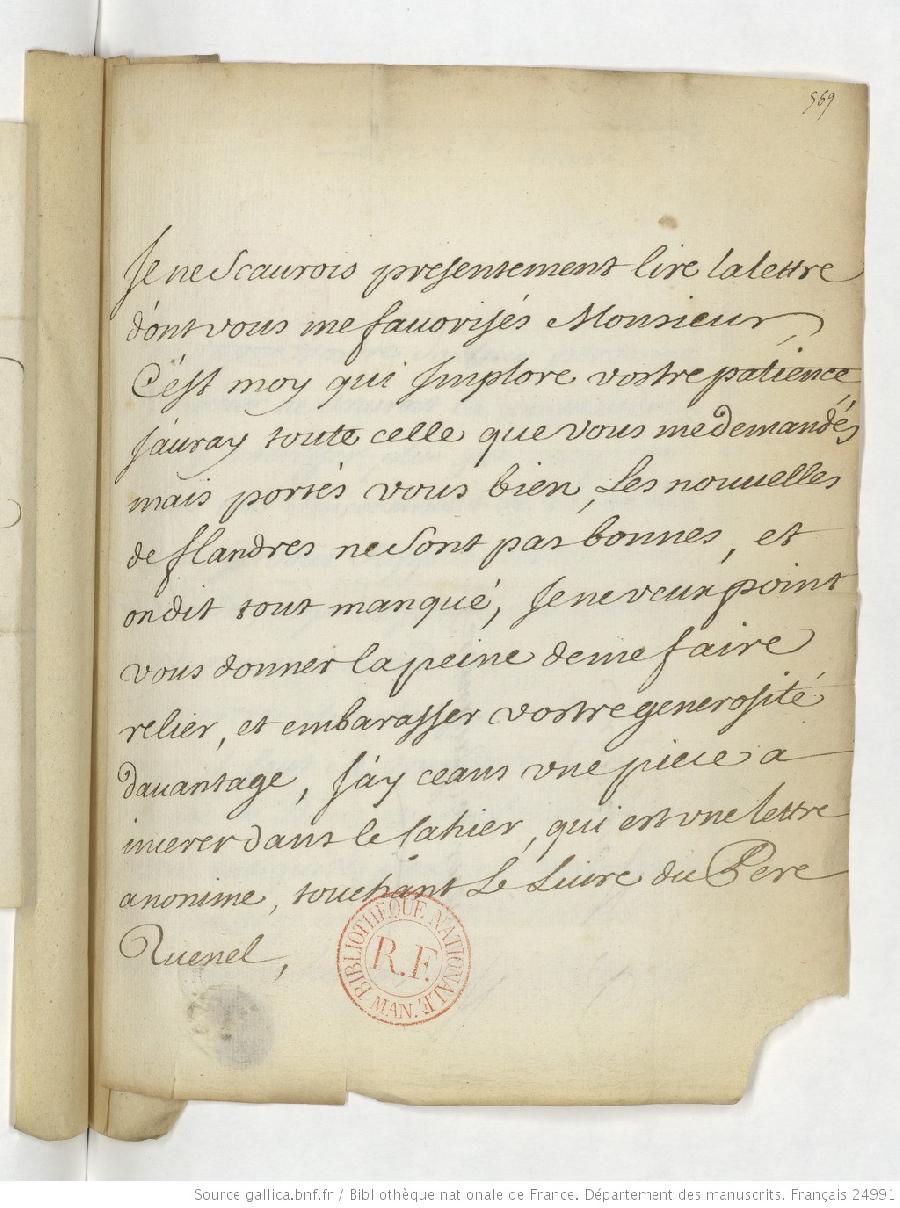 569
Je ne Scaurois presentement lire la lettre
dont vous me fauorisés Monsieur,
C'est moy qui Jmplore vostre patience,
J'auray toute celle que vous me demandés
mais portés vous bien, Les nouuelles
de flandres ne Sont pas bonnes, et
on dit tout manqué, Je ne veux point
vous donner la peine de me faire
relier, et embarasser vostre generosité
dauantage, J'ay ceans vne piece a
incerer dans le Cahier, qui est vne lettre
anonime, touchant Le Liure du Pere
Quenel,
BIBLIOTHÈQUE NATIONALE
R.F.
MAN.
Source gallica.bnf.fr / Bibliothèque nationale de France. Département des manuscrits. Français 24991